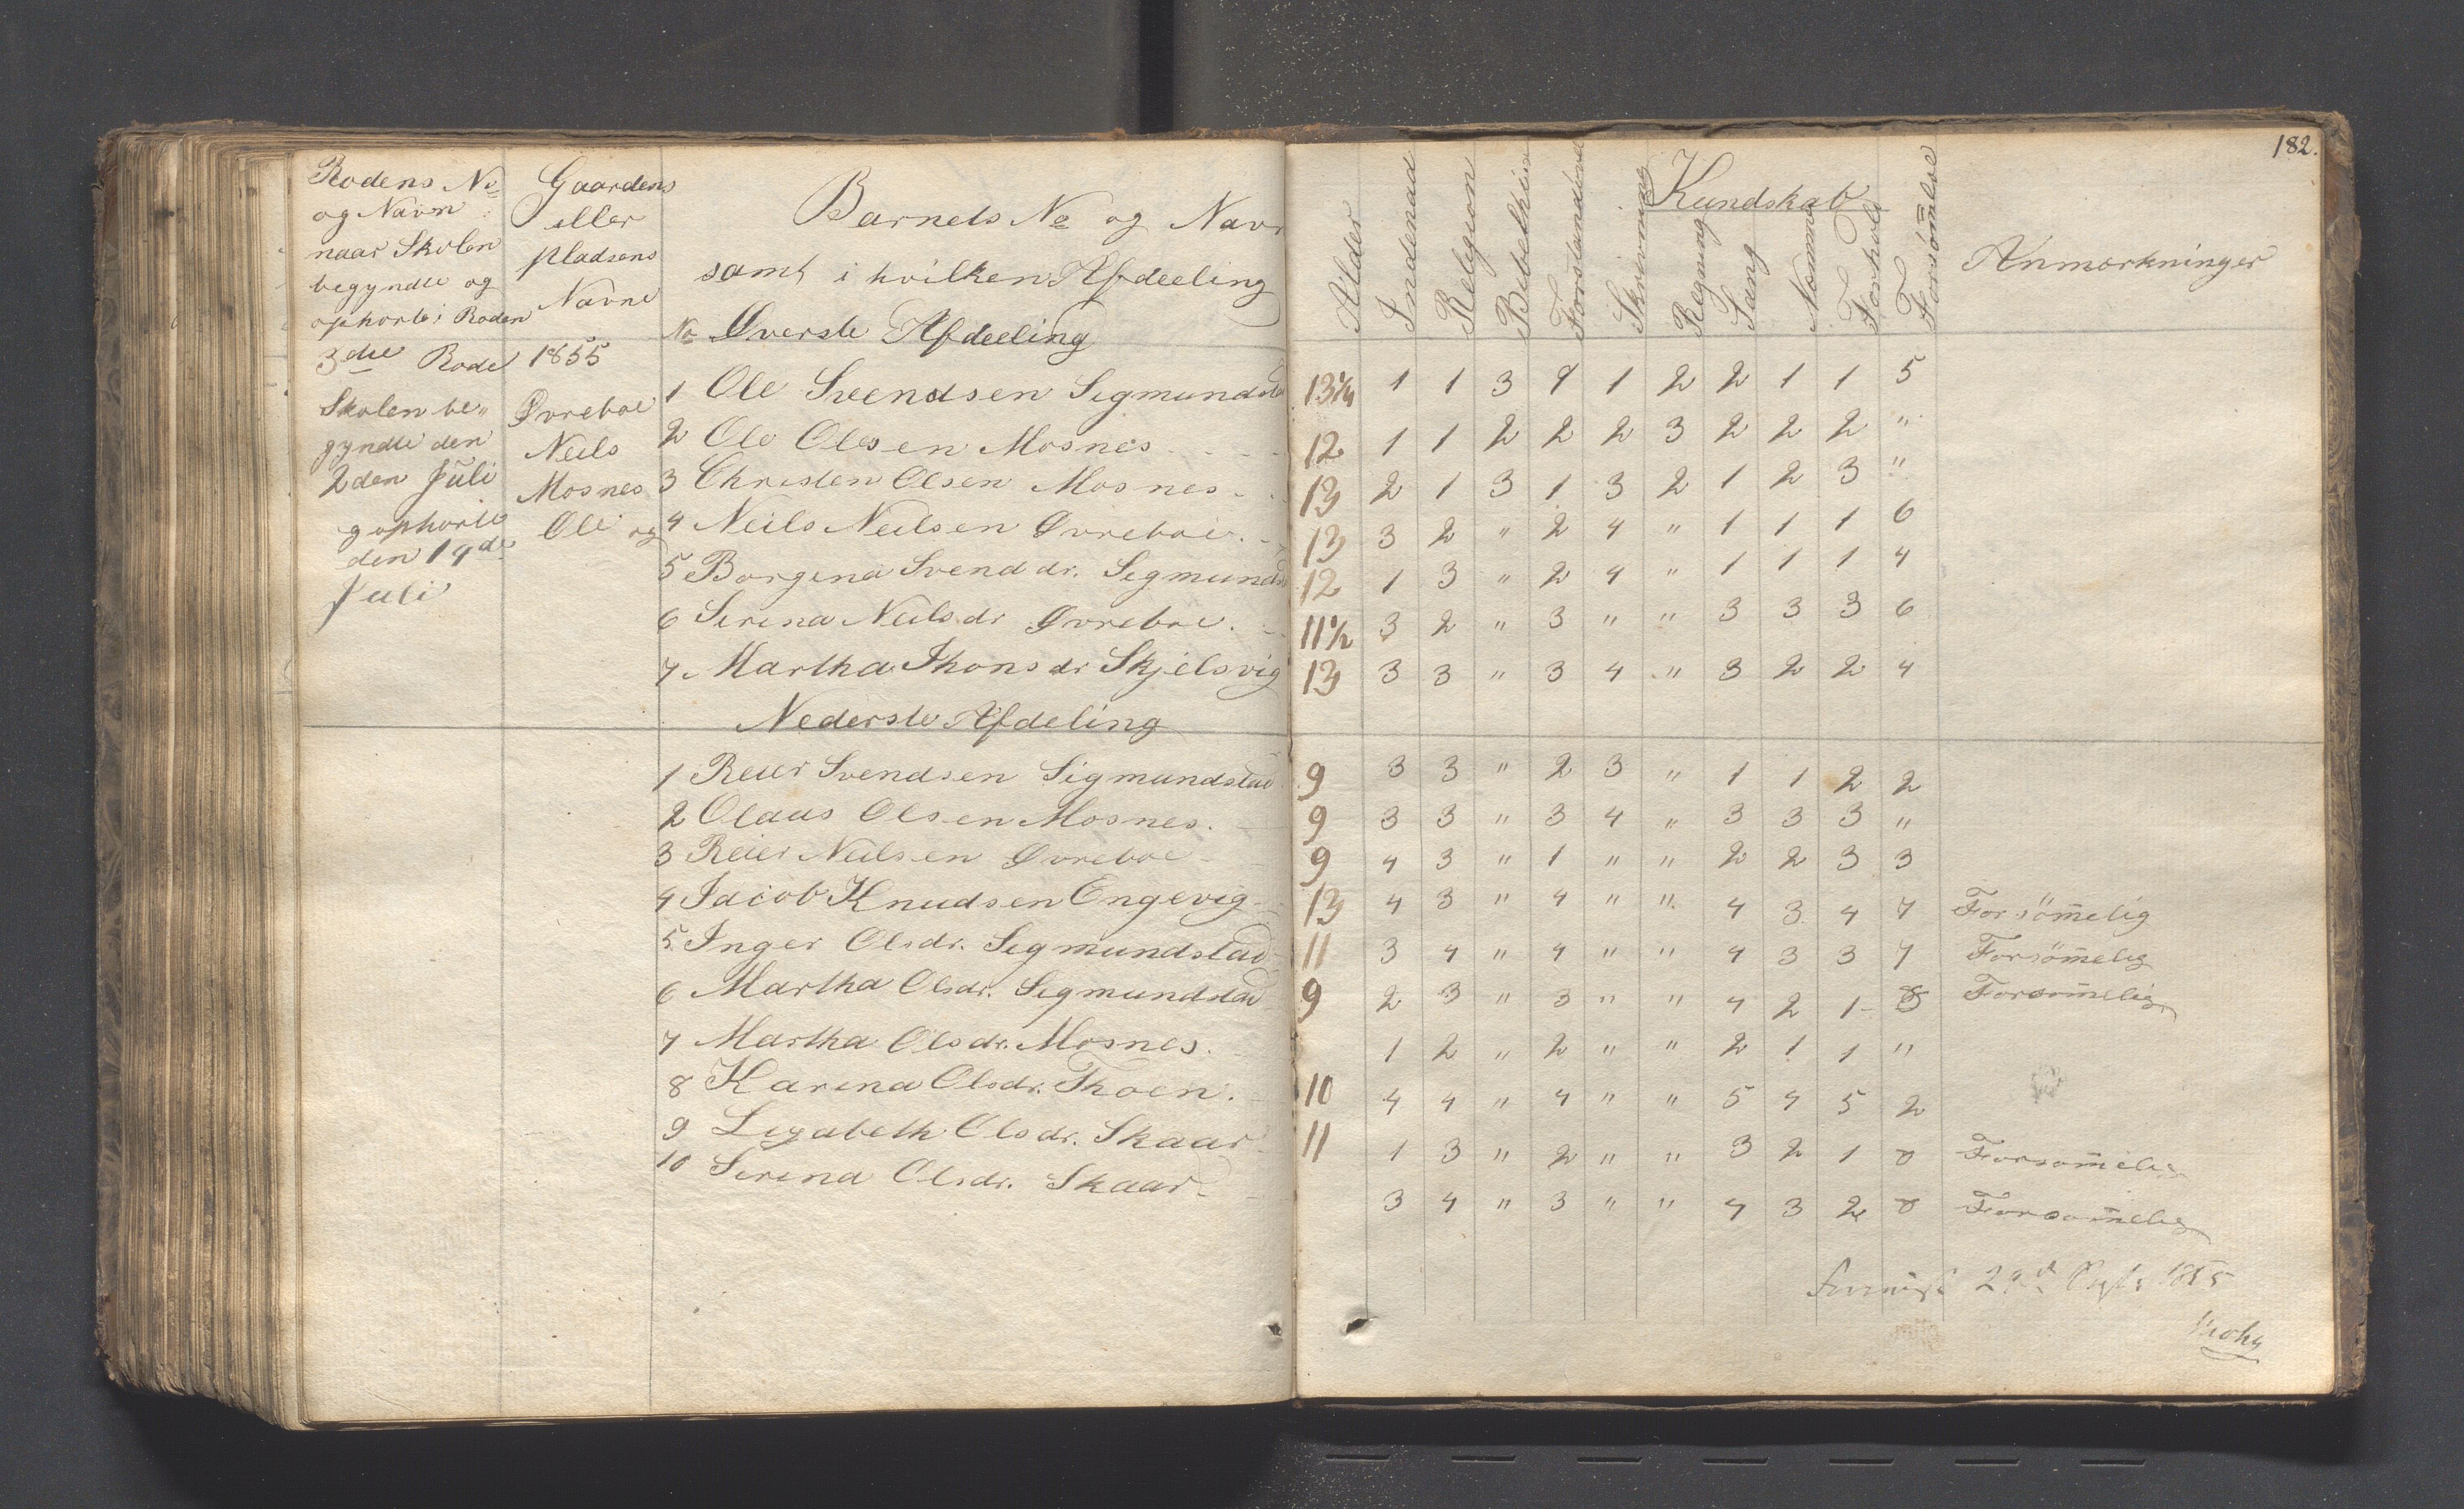 182.
Rodens No
og Navn
naar Skolen
begyndte og
ophorte i Roden
Gaardens
eller
pladsens
Navne
Barnets No og Navn
samt i hvilken Afdeeling
No Øverste Afdeeling
Alder Indenad Religion Forstand Skrivning Regning Sang Nemme Forhold Forsømmelse
Kundskab
Anmærkninger
3die Rode 1855
Skolen be„
gyndte den
2den Juli
ophorte
den 19de
Juli
Øvreboe
Neils
Mosnes
Ole og
1 Ole Svendsen Sigmundsta 13¼ 1 1 3 1 1 2 2 1 1 5
2 Ole Olesen Mosnes 12 1 1 2 2 2 3 2 2 2 "
3 Christen Olsen Mosnes 13 2 1 3 1 3 2 1 2 3 "
4 Neils Neilsen Øvreboe 13 3 2 " 2 4 " 1 1 1 6
5 Borgina Svend dr. Sigmunds 12 1 3 " 2 4 " 1 1 1 4
6 Sirina Neilsdr Øvreboe 11½ 3 2 " 3 " " 3 3 3 6
7 Martha Thons dr Skjelsvig 13 3 3 " 3 4 " 3 2 2 4
Nederste Afdeling
1 Reier Svendsen Sigmundstad 9 3 3 " 2 3 " 1 1 2 2
2 Olaus Olsen Mosnes. 9 3 3 " 3 4 " 3 3 3 "
3 Reier Neilsen Øvreboe 9 4 3 " 1 " " 2 2 3 3
4 Jacob Knudsen Engevig 13 4 3 " 4 " " 4 3 4 7 Forsömelig
5 Inger Olsdr. Sigmundstad 11 3 4 " 4 " " 4 3 3 7 Forsömelig
6 Martha Olsdr. Sigmundstad 9 2 3 " 3 " " 4 2 1 8 Forsomelig
7 Martha Olsdr. Mosnes. 1 2 " 2 " " 2 1 1 "
8 Karina Olsdr. Thoen. 10 4 4 " 4 " " 5 4 5 2
9 Lizabeth Olsdr. Skaar 11 1 3 " 2 " " 3 2 1 8 Forsomelig
10 Sirina Olsdr. Skaar 3 4 " 3 " " 4 3 2 8 Forsomelig
1855